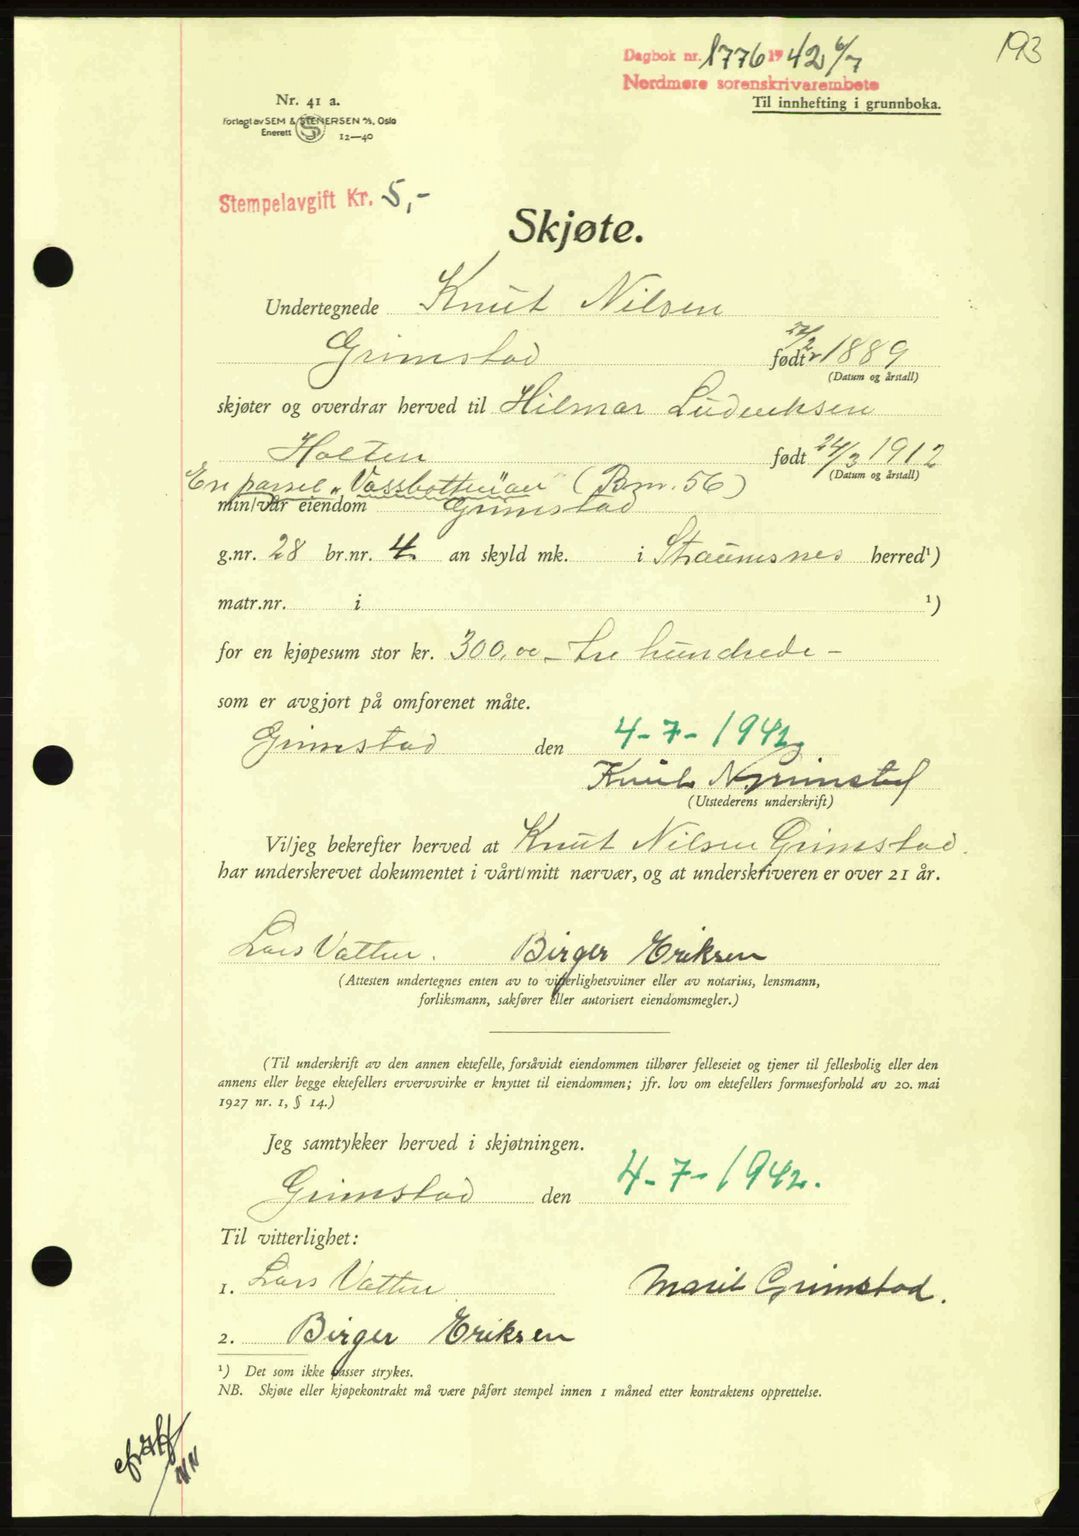 193
Dagbok nr. 1776 1942 6/7
Nordmøre sorenskrivarembete
Til innhefting i grunnboka.
Nr. 41 a.
Forlagt av SEM & STENERSEN A/S, Oslo
Enerett S 12—40
Stempelavgift Kr. 5,-
Skjøte.
Undertegnede Knut Nilsen
Grimstad født 1889
(Datum og årstall)
skjøter og overdrar herved til Hilmar Luderiksen
Holten født 24/3 1912
(Datum og årstall)
En parsel „Vassbotten" av (Brn. 56)
min/vår eiendom Grimstad
g.nr. 28 br.nr. 4 an skyld mk. i Straumsnes herred¹)
matr.nr. i ¹)
for en kjøpesum stor kr. 300,00 – tre hundrede –
som er avgjort på omforenet måte.
Grimstad den 4-7-1942
Knut N Grimstad
(Utstederens underskrift)
Vi/jeg bekrefter herved at Knut Nilsen Grimstad.
har underskrevet dokumentet i vårt/mitt nærvær, og at underskriveren er over 21 år.
Lars Vatten. Birger Eriksen
(Attesten undertegnes enten av to vitterlighetsvitner eller av notarius, lensmann,
forliksmann, sakfører eller autorisert eiendomsmegler.)
(Til underskrift av den annen ektefelle, forsåvidt eiendommen tilhører felleseiet og tjener til fellesbolig eller den
annens eller begge ektefellers ervervsvirke er knyttet til eiendommen; jfr. lov om ektefellers formuesforhold av 20. mai
1927 nr. 1, § 14.)
Jeg samtykker herved i skjøtningen.
Grimstad den 4-7-1942.
Til vitterlighet:
1. Lars Vatten Marit Grimstad.
2. Birger Eriksen
¹) Det som ikke passer strykes.
NB. Skjøte eller kjøpekontrakt må være påført stempel innen 1 måned etter kontraktens opprettelse.